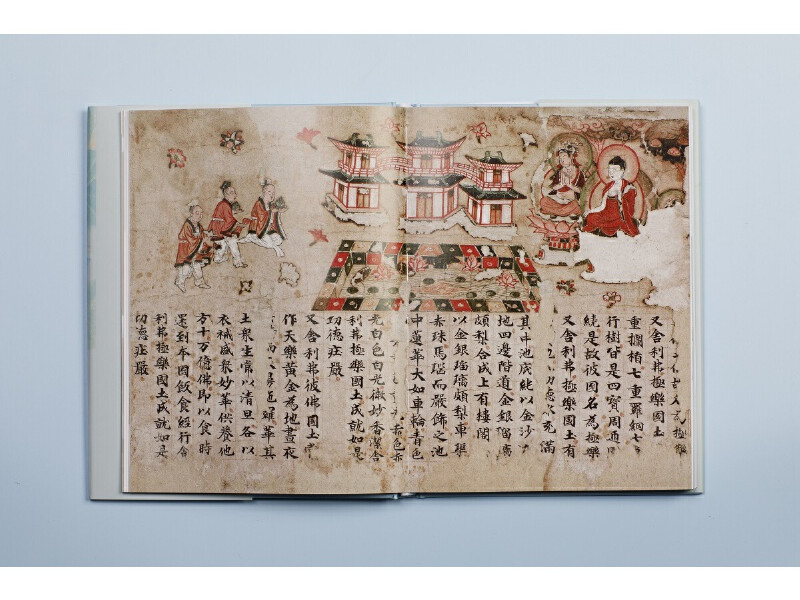 極
又舍利弗極樂國土
重欄楯七重羅網七
行樹皆是四寶周迊
繞是故彼國名為極樂
又舍利弗極樂國土有
功德水充滿
其中池底純以金沙
地四邊階道金銀瑠璃
頗梨合成上有樓閣
以金銀瑠璃頗梨車璖
赤珠馬瑙而嚴飾之池
中蓮華大如車輪青色
赤色赤
光白色白光微妙香潔舍
利弗極樂國土成就如是
功德莊嚴
又舍利弗彼佛國土
作天樂黃金為地晝夜
而雨羅華其
土衆生常以清旦各以
衣裓盛衆妙華供養他
方十万億佛即以食時
還到本國飯食經行舍
利弗極樂國土成就如是
功德莊嚴